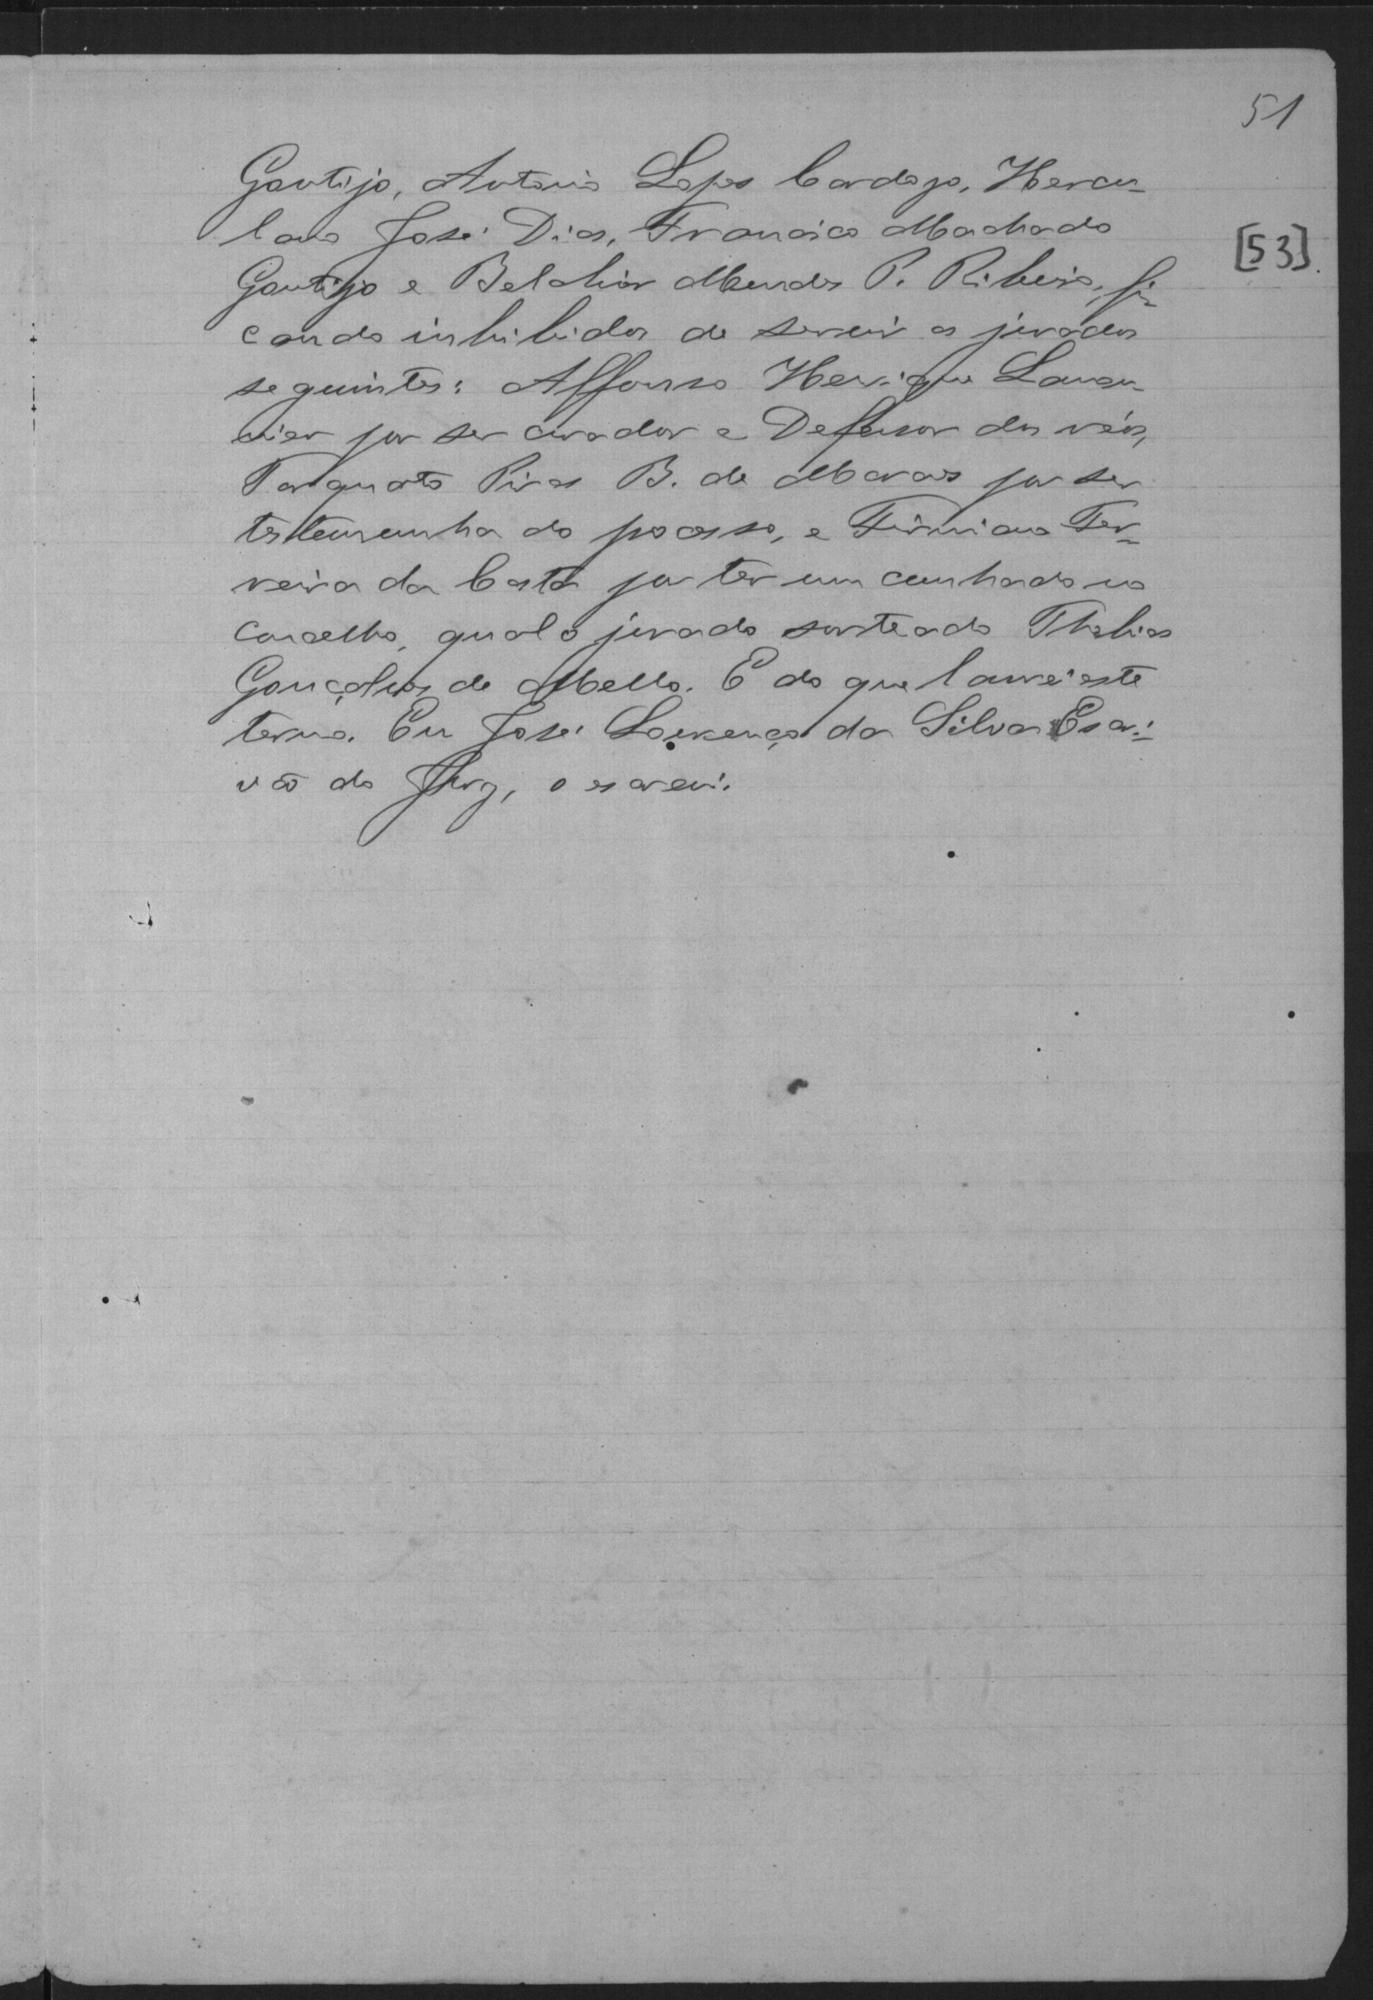 51
Gontijo, Antonio Lopes Cardozo, Hercu-
lano José Dias, Francisco Machado
[53]
Gontijo e Belchior Mendes P. Ribeiro, fi-
cando inhibidos de servir os jurados
seguintes: Affonso Henrique
por ser curador e Defensor dos réos,
Torquato Pires B. de Moraes por ser
testemunha do pocesso, e Firmiano Fer-
reira da Costa por ter um cunhado no
concelho, qual o jurado sorteado
Gonçalves de Mello. E do que lavrei este
termo. Eu José Lourenço da Silva Escri-
vão do Jury, o escrevi.